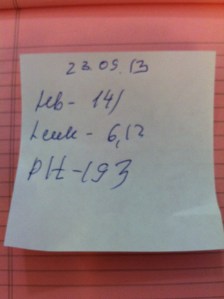 23.09.13
Hb - 141
Leuk - 6,12
Plt - 193